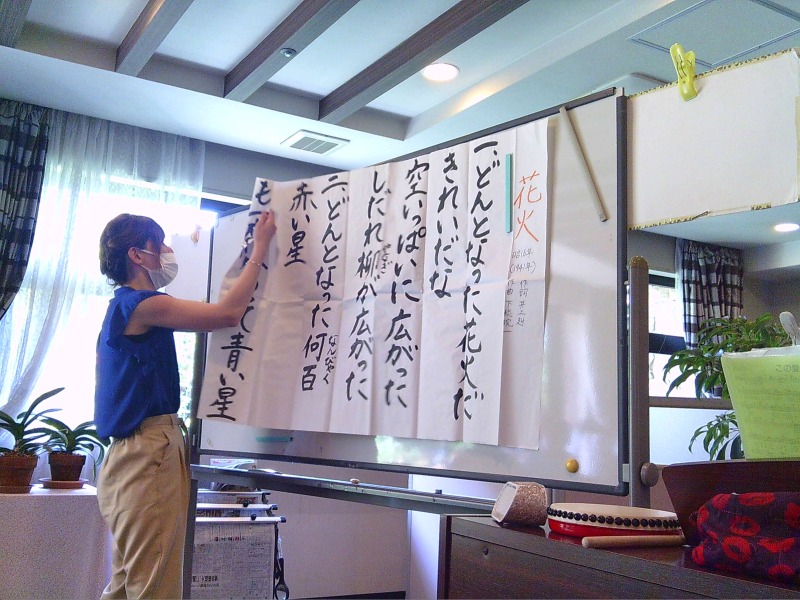 花火
昭16年
(1941年)
作詞 井上赳
作曲 下総皖一
一、どんとなった花火だ
きれいだな
空いっぱいに広がった
しだれ柳が広がった
二、どんとなった何百
なんびゃく
赤い星
も一度
青い星